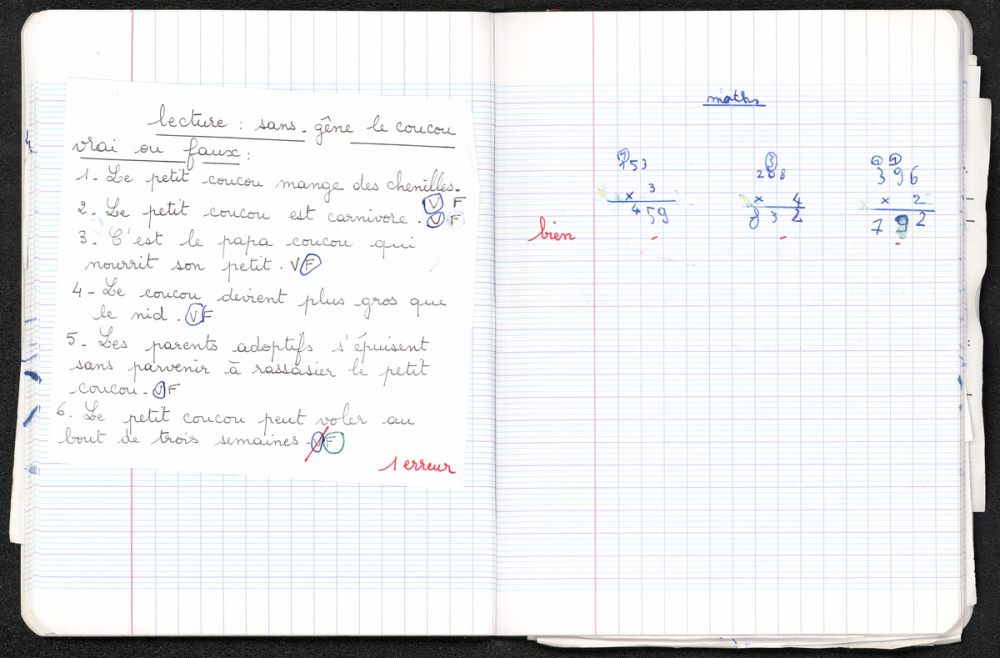 lecture : sans-gêne le coucou
vrai ou faux :
1. Le petit coucou mange des chenilles.
V F
2. Le petit coucou est carnivore. V F
3. C'est le papa coucou qui
nourrit son petit. V F
4- Le coucou devient plus gros que
le nid. V F
5. Les parents adoptifs s'épuisent
sans parvenir à rassasier le petit
coucou. V F
6. Le petit coucou peut voler au
bout de trois semaines. V F
1 erreur
maths
1
153
x 3
459
3
208
x 4
832
1 1
396
x 2
792
bien